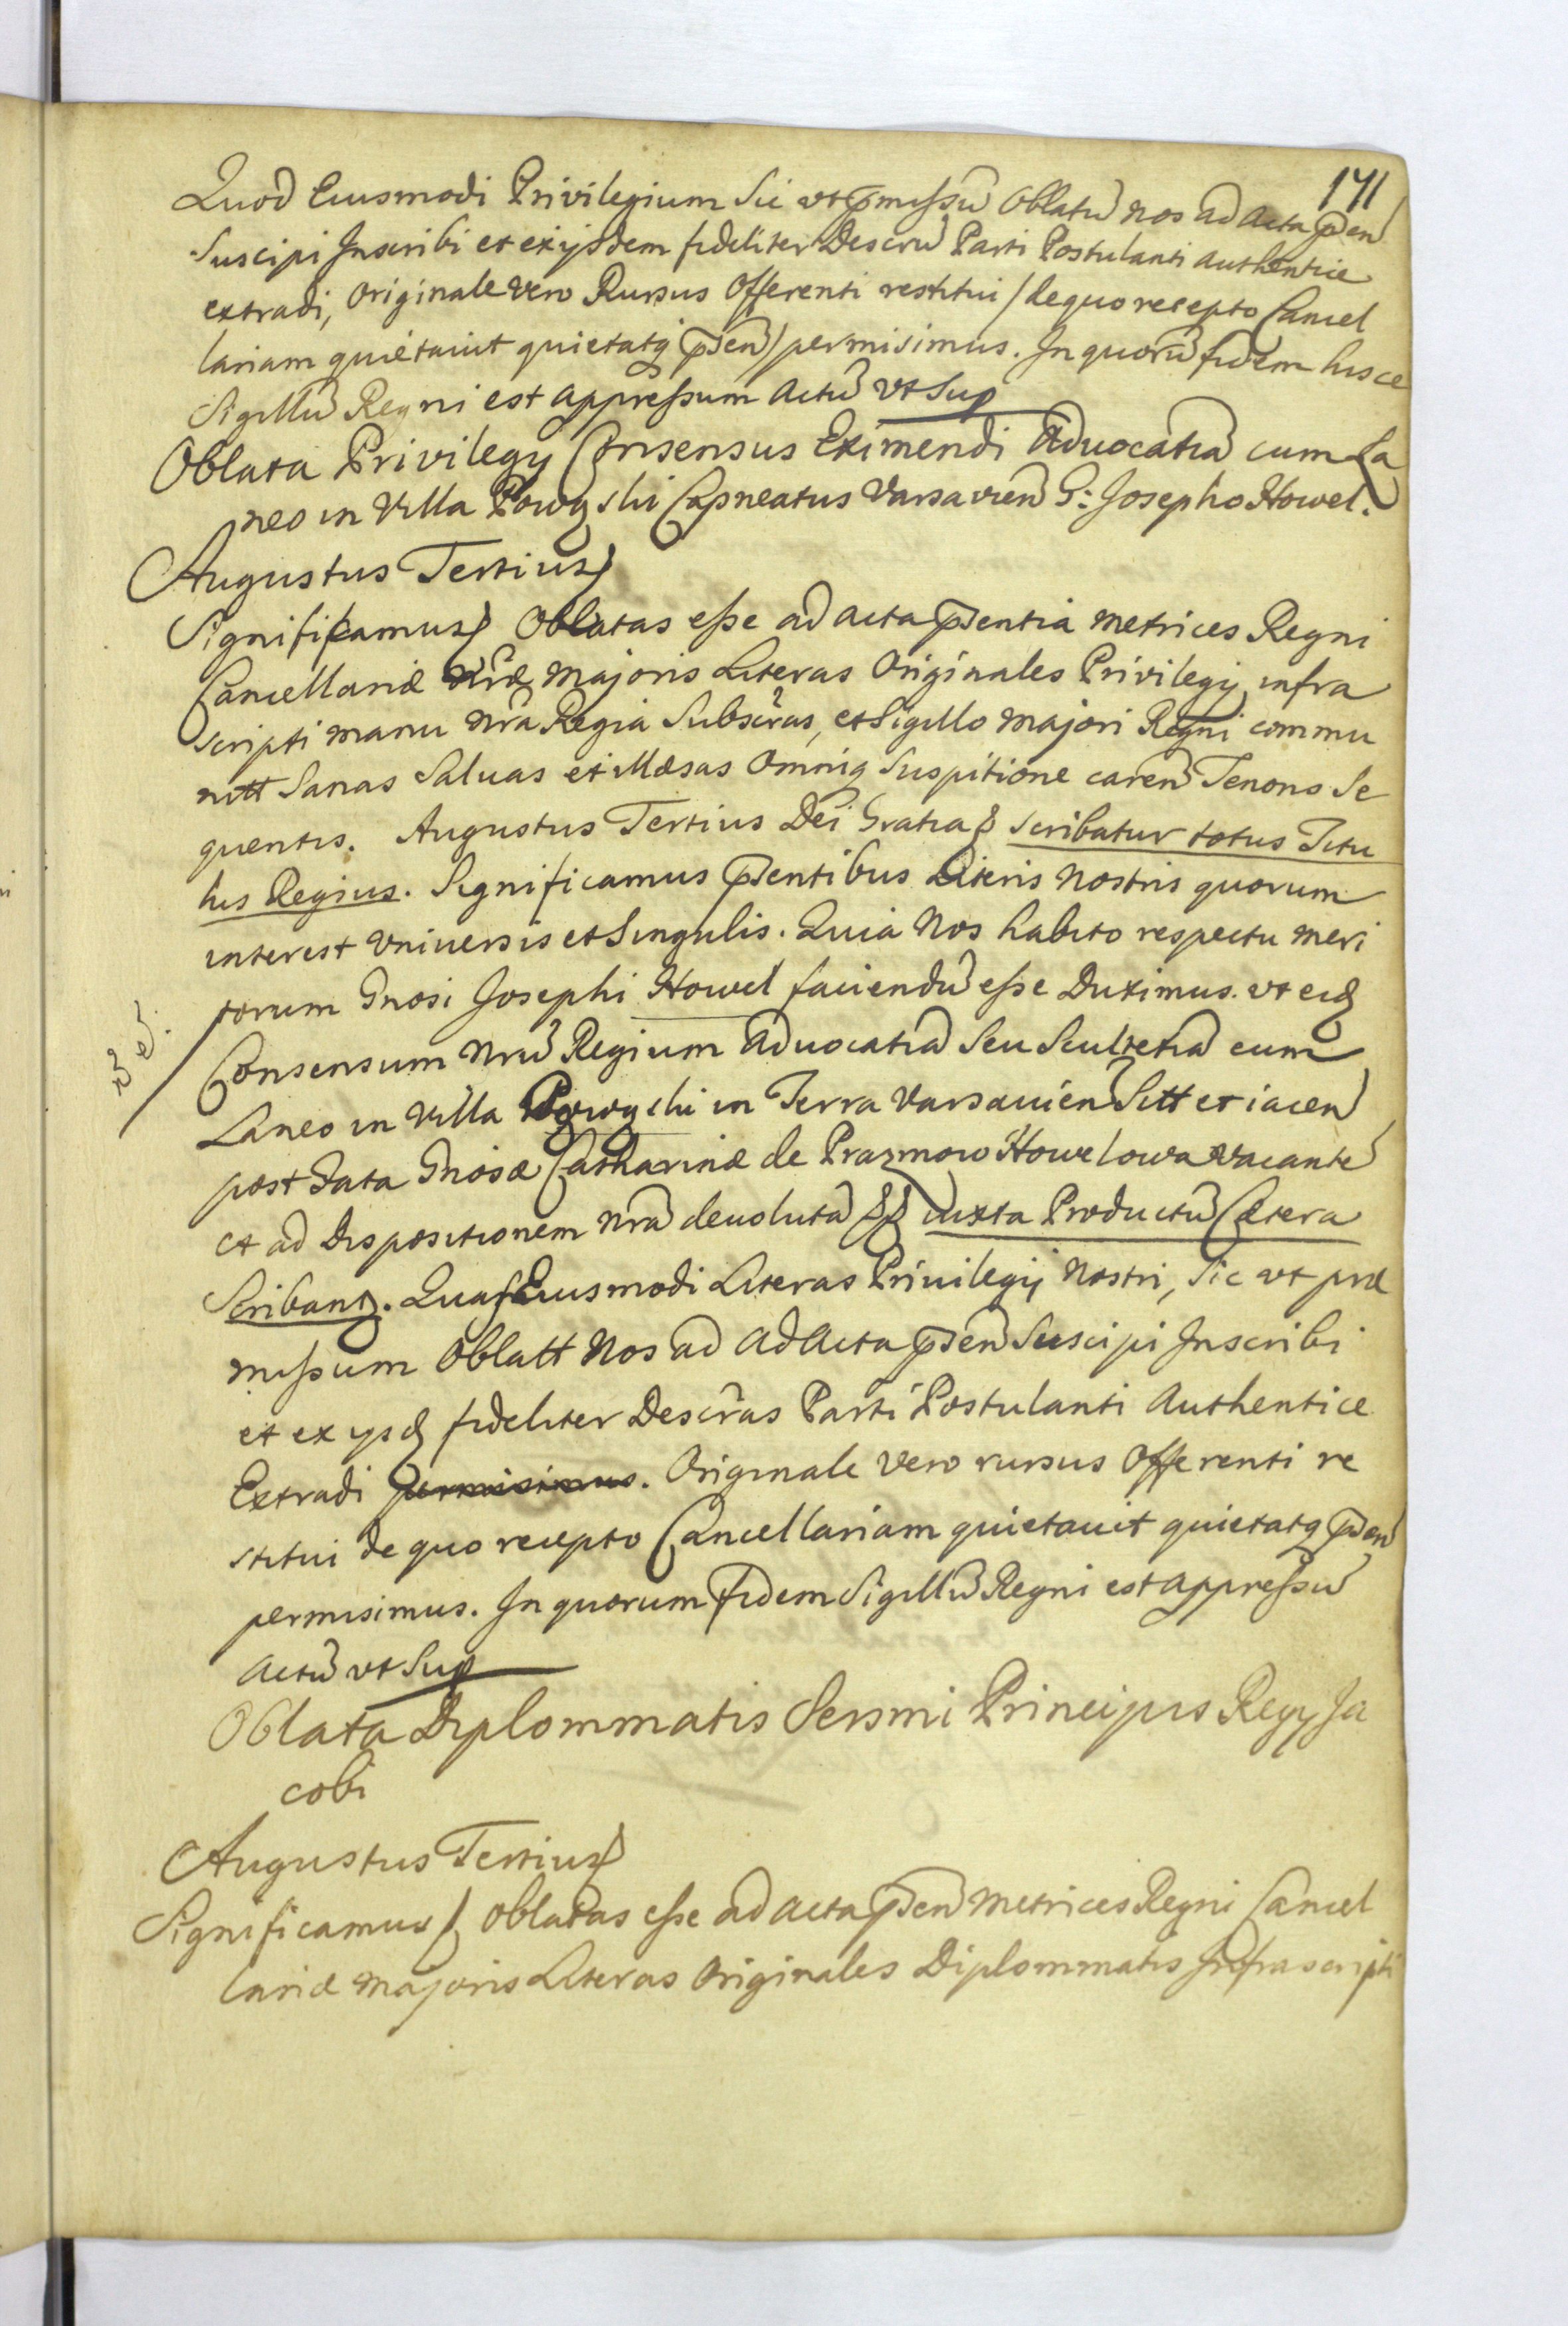 171
Quod Eiusmodi Privilegium Sic ut p̃missũ Oblatũ nos ad Acta p̃sen
Suscipi Inscribi et ex ijsdem fideliter Descrũ Parti Postulanti authentice
extradi, Originale vero Rursus Offerenti restitui / de quo recepto Cancel
lariam quietavit quietatq p̃sen / permisimus. In quorũ fidem hisce
Sigillũ Regni est appressum Actũ vt Sup
Oblata Privilegy Consensus Eximendi Aduocatiã cum La
neo in Villa Powązki Capneatus Varsavien G: Josepho Howel.
Augustus Tertius
Significamus Oblatas esse ad acta p̃sentia Metrices Regni
Cancellariæ Nr̃æ Majoris Literas Originales Privilegij infra
scripti manu nr̃a Regia Subscr̃as, et Sigillo majori Regni commu
nitt Sanas Saluas et illæsas Omniq Suspitione caren Tenoris Se
quentis. Augustus Tertius Dei Gratia scribatur totus Titu
lus Regius. Significamus p̃sentibus Literis Nostris quorum
interest Vniuersis et Singulis. Quia Nos habito respectu meri
torum Gnosi Josephi Howel faciendũ esse Duximus. vt eid
Consensum Nrũ Regium Aduocatiã Seu Scultetiã cum
Laneo in Villa Powązki in Terra Varsauien Sitt et iacen
post Fata Gnosæ Catharinæ de Prazmow Howelowa vacantẽ
et ad Dispositionem nrã deuolutã iuxta Productũ Cætera
Scribant. Quas Eiusmodi Literas Priuilegij Nostri, Sic vt præ
missum Oblatt Nos ad Ad Acta p̃sen Suscipi Inscribi
et ex ysd fideliter Descr̃as Parti Postulanti Authentice
Extradi permisimus. Originale vero rursus Offerenti re
stitui de quo recepto Cancellariam quietauit quietatq p̃sen
permisimus. In quorum Fidem Sigillũ Regni est appressũ
Actũ vt Sup
Oblata Diplommatis Sersmi Principis Regy Ja
cobi
Augustus Tertius
Significamus Oblatas esse ad acta p̃sen Metrices Regni Cancel
lariæ Majoris Literas Originales Diplommatis Infrascripti